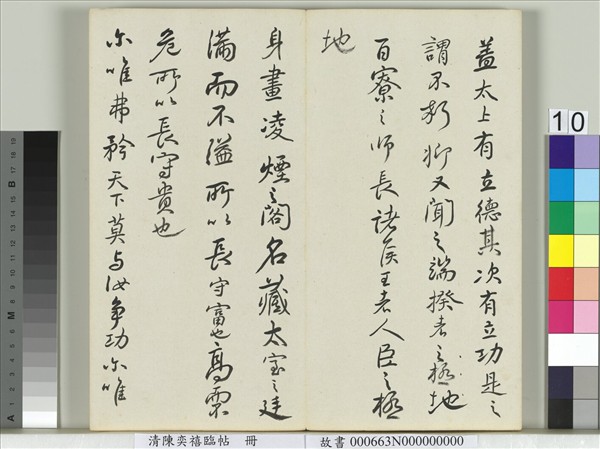 蓋太上有立德其次有立功是之
謂不朽抑又聞之端揆者之極地
百寮之師長諸侯王者人臣之極
地
身畫凌煙之閣名藏太室之廷
滿而不溢所以長守富也高而
危所以長守貴也
尓唯弗矜天下莫与汝争功尓唯
清陳奕禧臨帖 冊
故書 000663N000000000
10
A 1 2 3 4 5 6 M 8 9 10 11 12 13 14 15 B 17 18 19